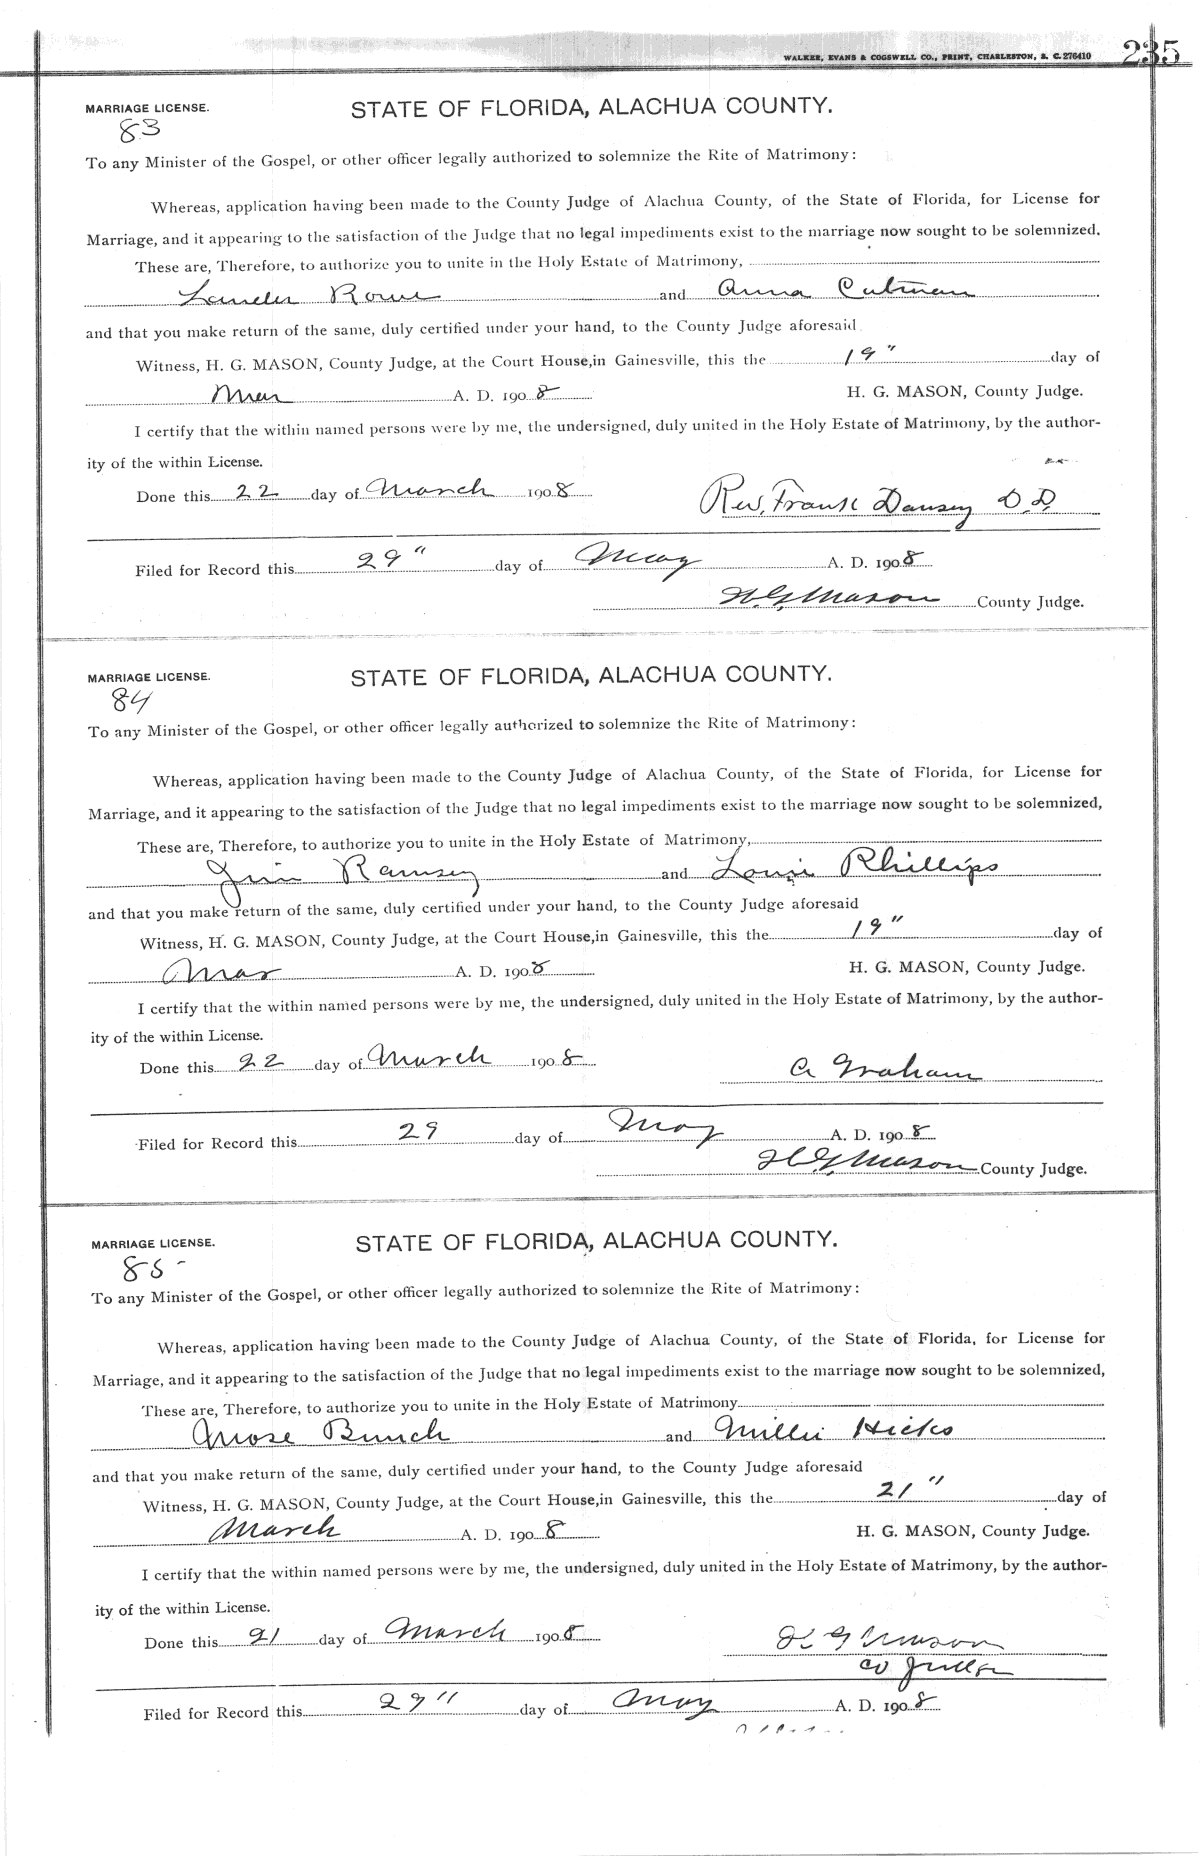 WALKER, EVANS & COGSWELL CO., PRINT, CHARLESTON, S. C. 276410 235
MARRIAGE LICENSE. STATE OF FLORIDA, ALACHUA COUNTY.
83
To any Minister of the Gospel, or other officer legally authorized to solemnize the Rite of Matrimony:
Whereas, application having been made to the County Judge of Alachua County, of the State of Florida, for License for
Marriage, and it appearing to the satisfaction of the Judge that no legal impediments exist to the marriage now sought to be solemnized.
These are, Therefore, to authorize you to unite in the Holy Estate of Matrimony,
Rowe and Anna Cutman
and that you make return of the same, duly certified under your hand, to the County Judge aforesaid.
Witness, H. G. MASON, County Judge, at the Court House, in Gainesville, this the 19" day of
Mar A. D. 1908 H. G. MASON, County Judge.
I certify that the within named persons were by me, the undersigned, duly united in the Holy Estate of Matrimony, by the author-
ity of the within License.
Done this 22 day of March 1908 Rev. Frank Dansey D.D.
Filed for Record this 29" day of May A. D. 1908
H. G. Mason County Judge.
MARRIAGE LICENSE. STATE OF FLORIDA, ALACHUA COUNTY.
84
To any Minister of the Gospel, or other officer legally authorized to solemnize the Rite of Matrimony:
Whereas, application having been made to the County Judge of Alachua County, of the State of Florida, for License for
Marriage, and it appearing to the satisfaction of the Judge that no legal impediments exist to the marriage now sought to be solemnized,
These are, Therefore, to authorize you to unite in the Holy Estate of Matrimony,
Jim Ramsey and Phillips
and that you make return of the same, duly certified under your hand, to the County Judge aforesaid
Witness, H. G. MASON, County Judge, at the Court House, in Gainesville, this the 19" day of
Mar A. D. 1908 H. G. MASON, County Judge.
I certify that the within named persons were by me, the undersigned, duly united in the Holy Estate of Matrimony, by the author-
ity of the within License.
Done this 22 day of March 1908 A Graham
Filed for Record this 29 day of May A. D. 1908
H. G. Mason County Judge.
MARRIAGE LICENSE. STATE OF FLORIDA, ALACHUA COUNTY.
85
To any Minister of the Gospel, or other officer legally authorized to solemnize the Rite of Matrimony:
Whereas, application having been made to the County Judge of Alachua County, of the State of Florida, for License for
Marriage, and it appearing to the satisfaction of the Judge that no legal impediments exist to the marriage now sought to be solemnized,
These are, Therefore, to authorize you to unite in the Holy Estate of Matrimony
Mose Bunch and Millie Hicks
and that you make return of the same, duly certified under your hand, to the County Judge aforesaid
Witness, H. G. MASON, County Judge, at the Court House, in Gainesville, this the 21" day of
March A. D. 1908 H. G. MASON, County Judge.
I certify that the within named persons were by me, the undersigned, duly united in the Holy Estate of Matrimony, by the author-
ity of the within License.
Done this 21 day of March 1908 H G Mason
Co Judge
Filed for Record this 29" day of May A. D. 1908